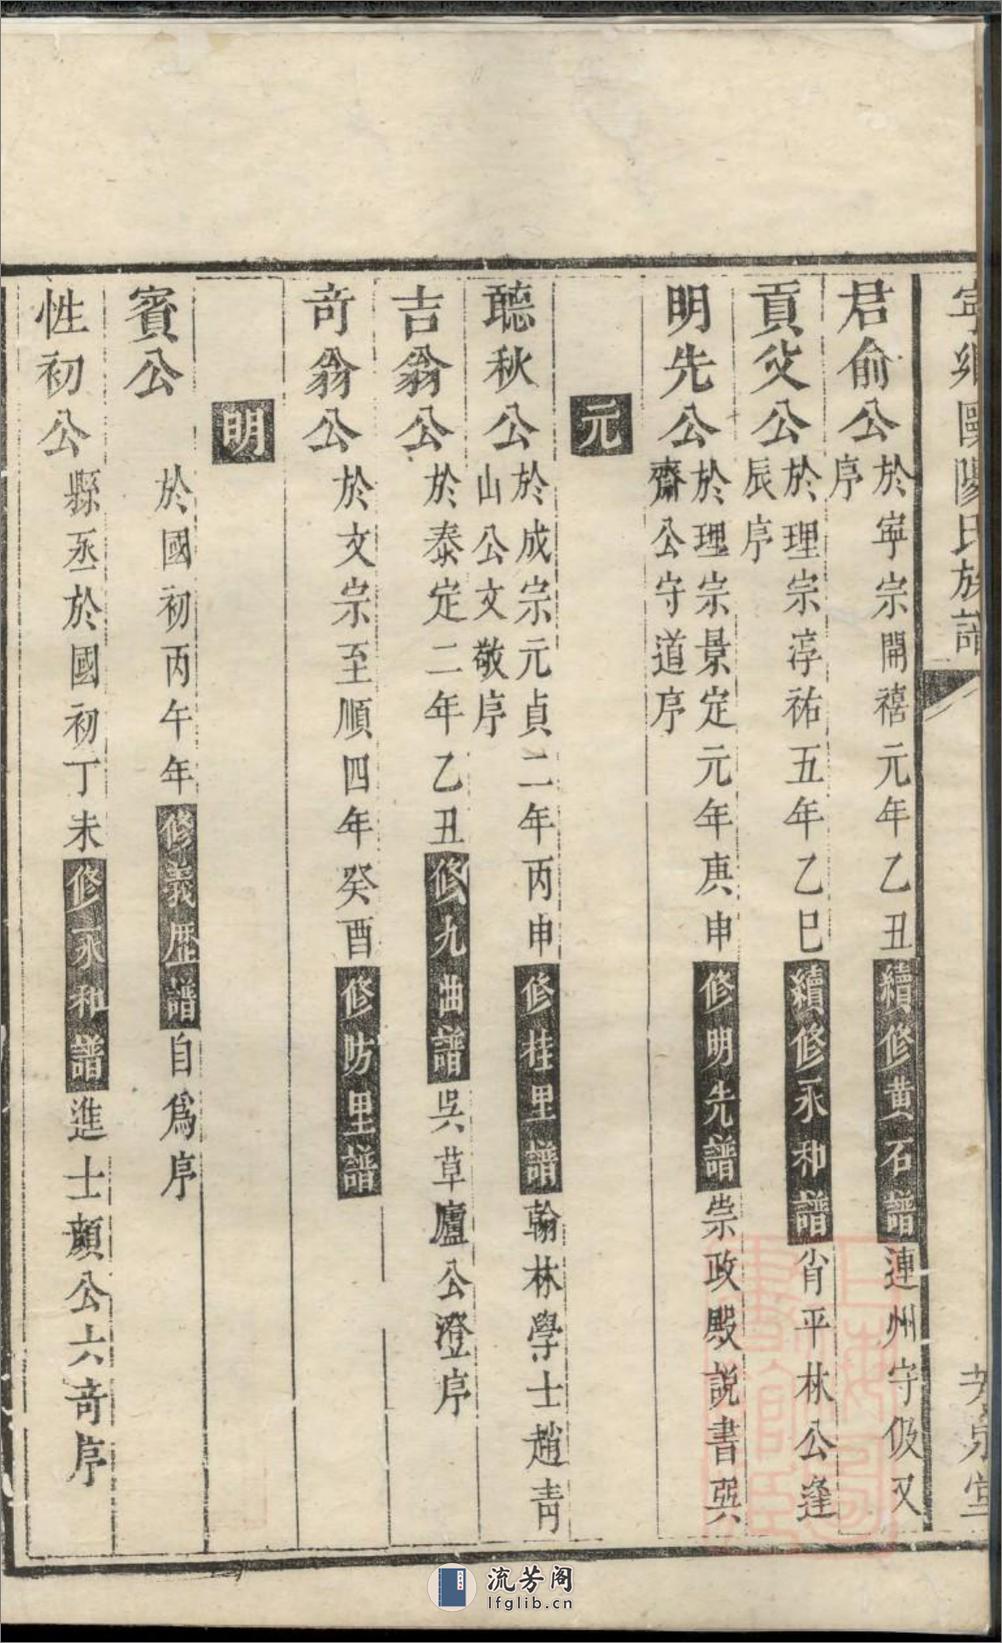 寧鄉歐陽氏族譜
君俞公 於寧宗開禧元年乙丑續修黃石譜連州守伋又
序
貢父公 於理宗淳祐五年乙巳續修永和譜肖平林公逢
辰序
明先公 於理宗景定元年庚申修明先譜崇政殿說書巽
齋公守道序
元
聽秋公 於成宗元貞二年丙申修桂里譜翰林學士趙青
山公文敬序
吉翁公 於泰定二年乙丑修九曲譜吳草廬公澄序
奇翁公 於文宗至順四年癸酉修防里譜
明
賓公 於國初丙午年修義歷譜自為序
性初公 縣丞於國初丁未修永和譜進士顏公六奇序
流芳阁
lfglib.cn